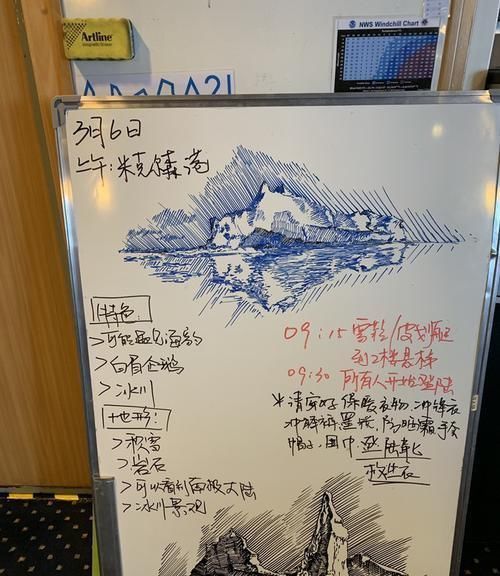 Artline
NWS Windchill Chart
3月6日
上午:米克尔森港
特色:
>可能遇见海豹
>白眉企鹅
>冰川
地形:
>积雪
>岩石
>可以看到南极大陆
>冰川景观
09:15 雪鞋/皮划艇
到2楼悬梯
09:30 所有人开始登陆
*请穿好保暖衣物,冲锋衣
冲锋裤,墨镜,防晒霜,手套
帽子,围巾,登陆靴
救生衣